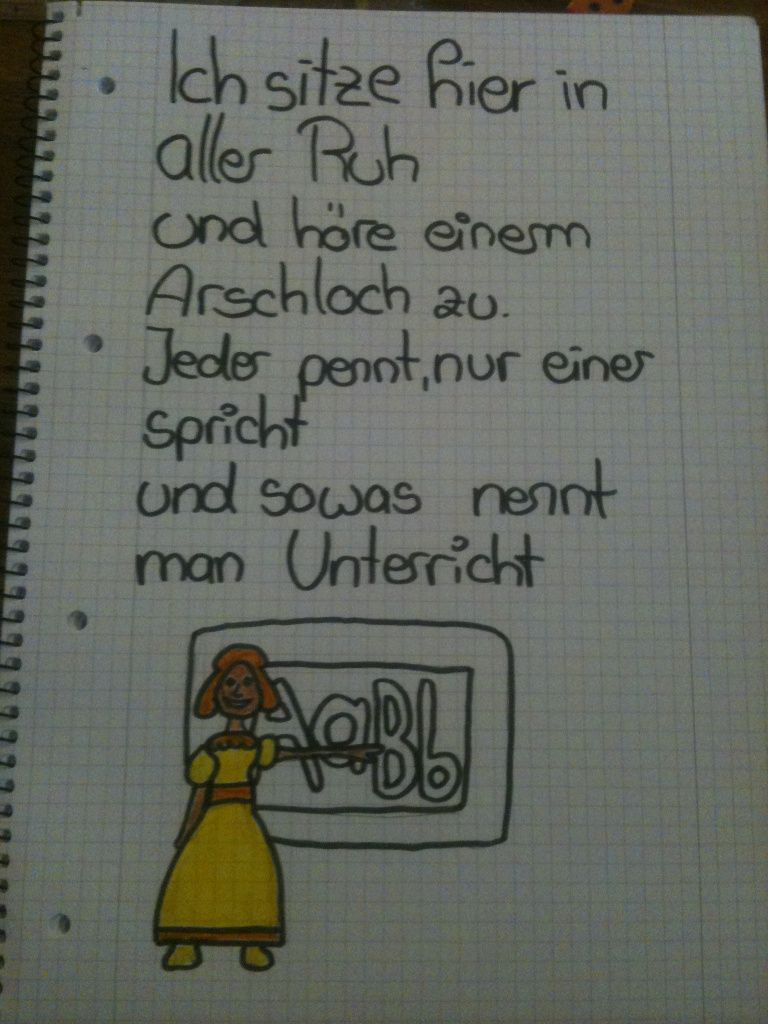 Ich sitze hier in
aller Ruh
und höre einem
Arschloch zu.
Jeder pennt, nur einer
spricht
und sowas nennt
man Unterricht
AaBb